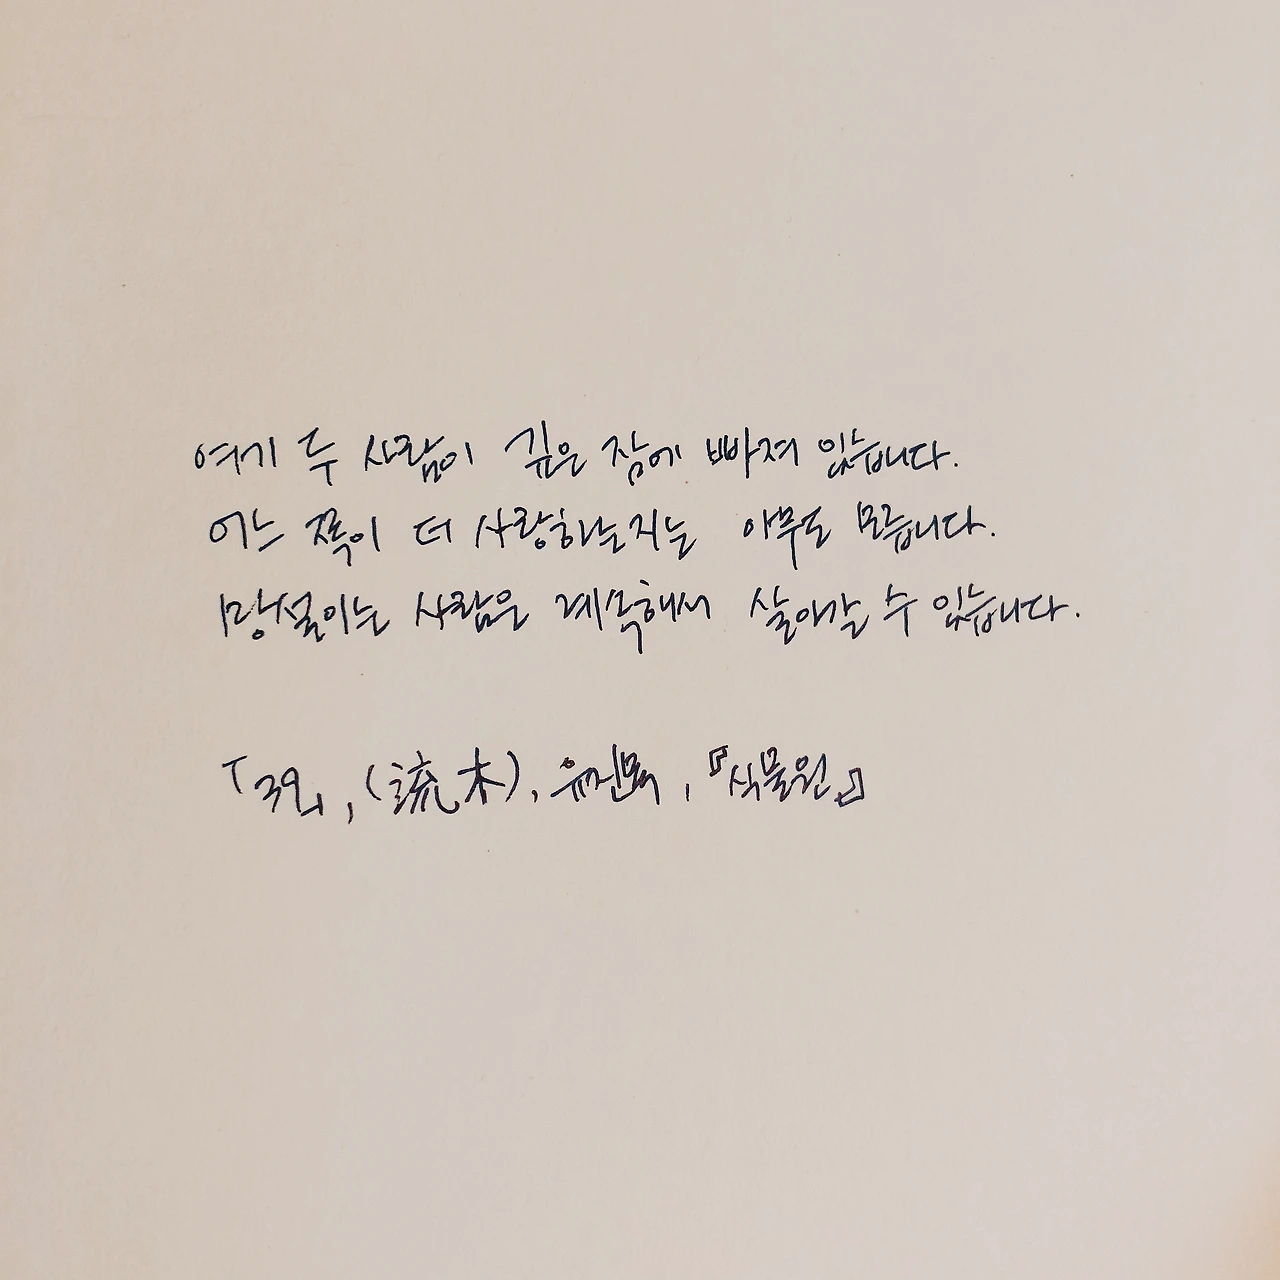 여기 두 사람이 깊은 잠에 빠져 있습니다.
어느 쪽이 더 사랑하는지는 아무도 모릅니다.
망설이는 사람은 계속해서 살아갈 수 있습니다.
「39」, (流木), 유진목, 『식물원』